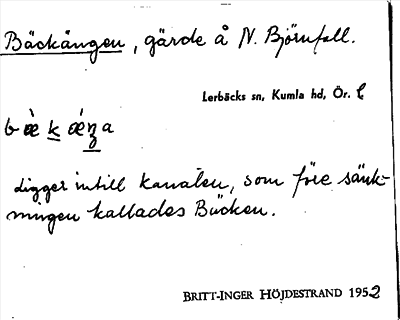 Bäckängen, gärde å N. Björnfall.
Lerbäcks sn, Kumla hd, Ör. l
b æ̀ k ǽŋ a
ligger intill kanalen, som före sänk-
ningen kallades Bäcken.
BRITT-INGER HÖJDESTRAND 1952